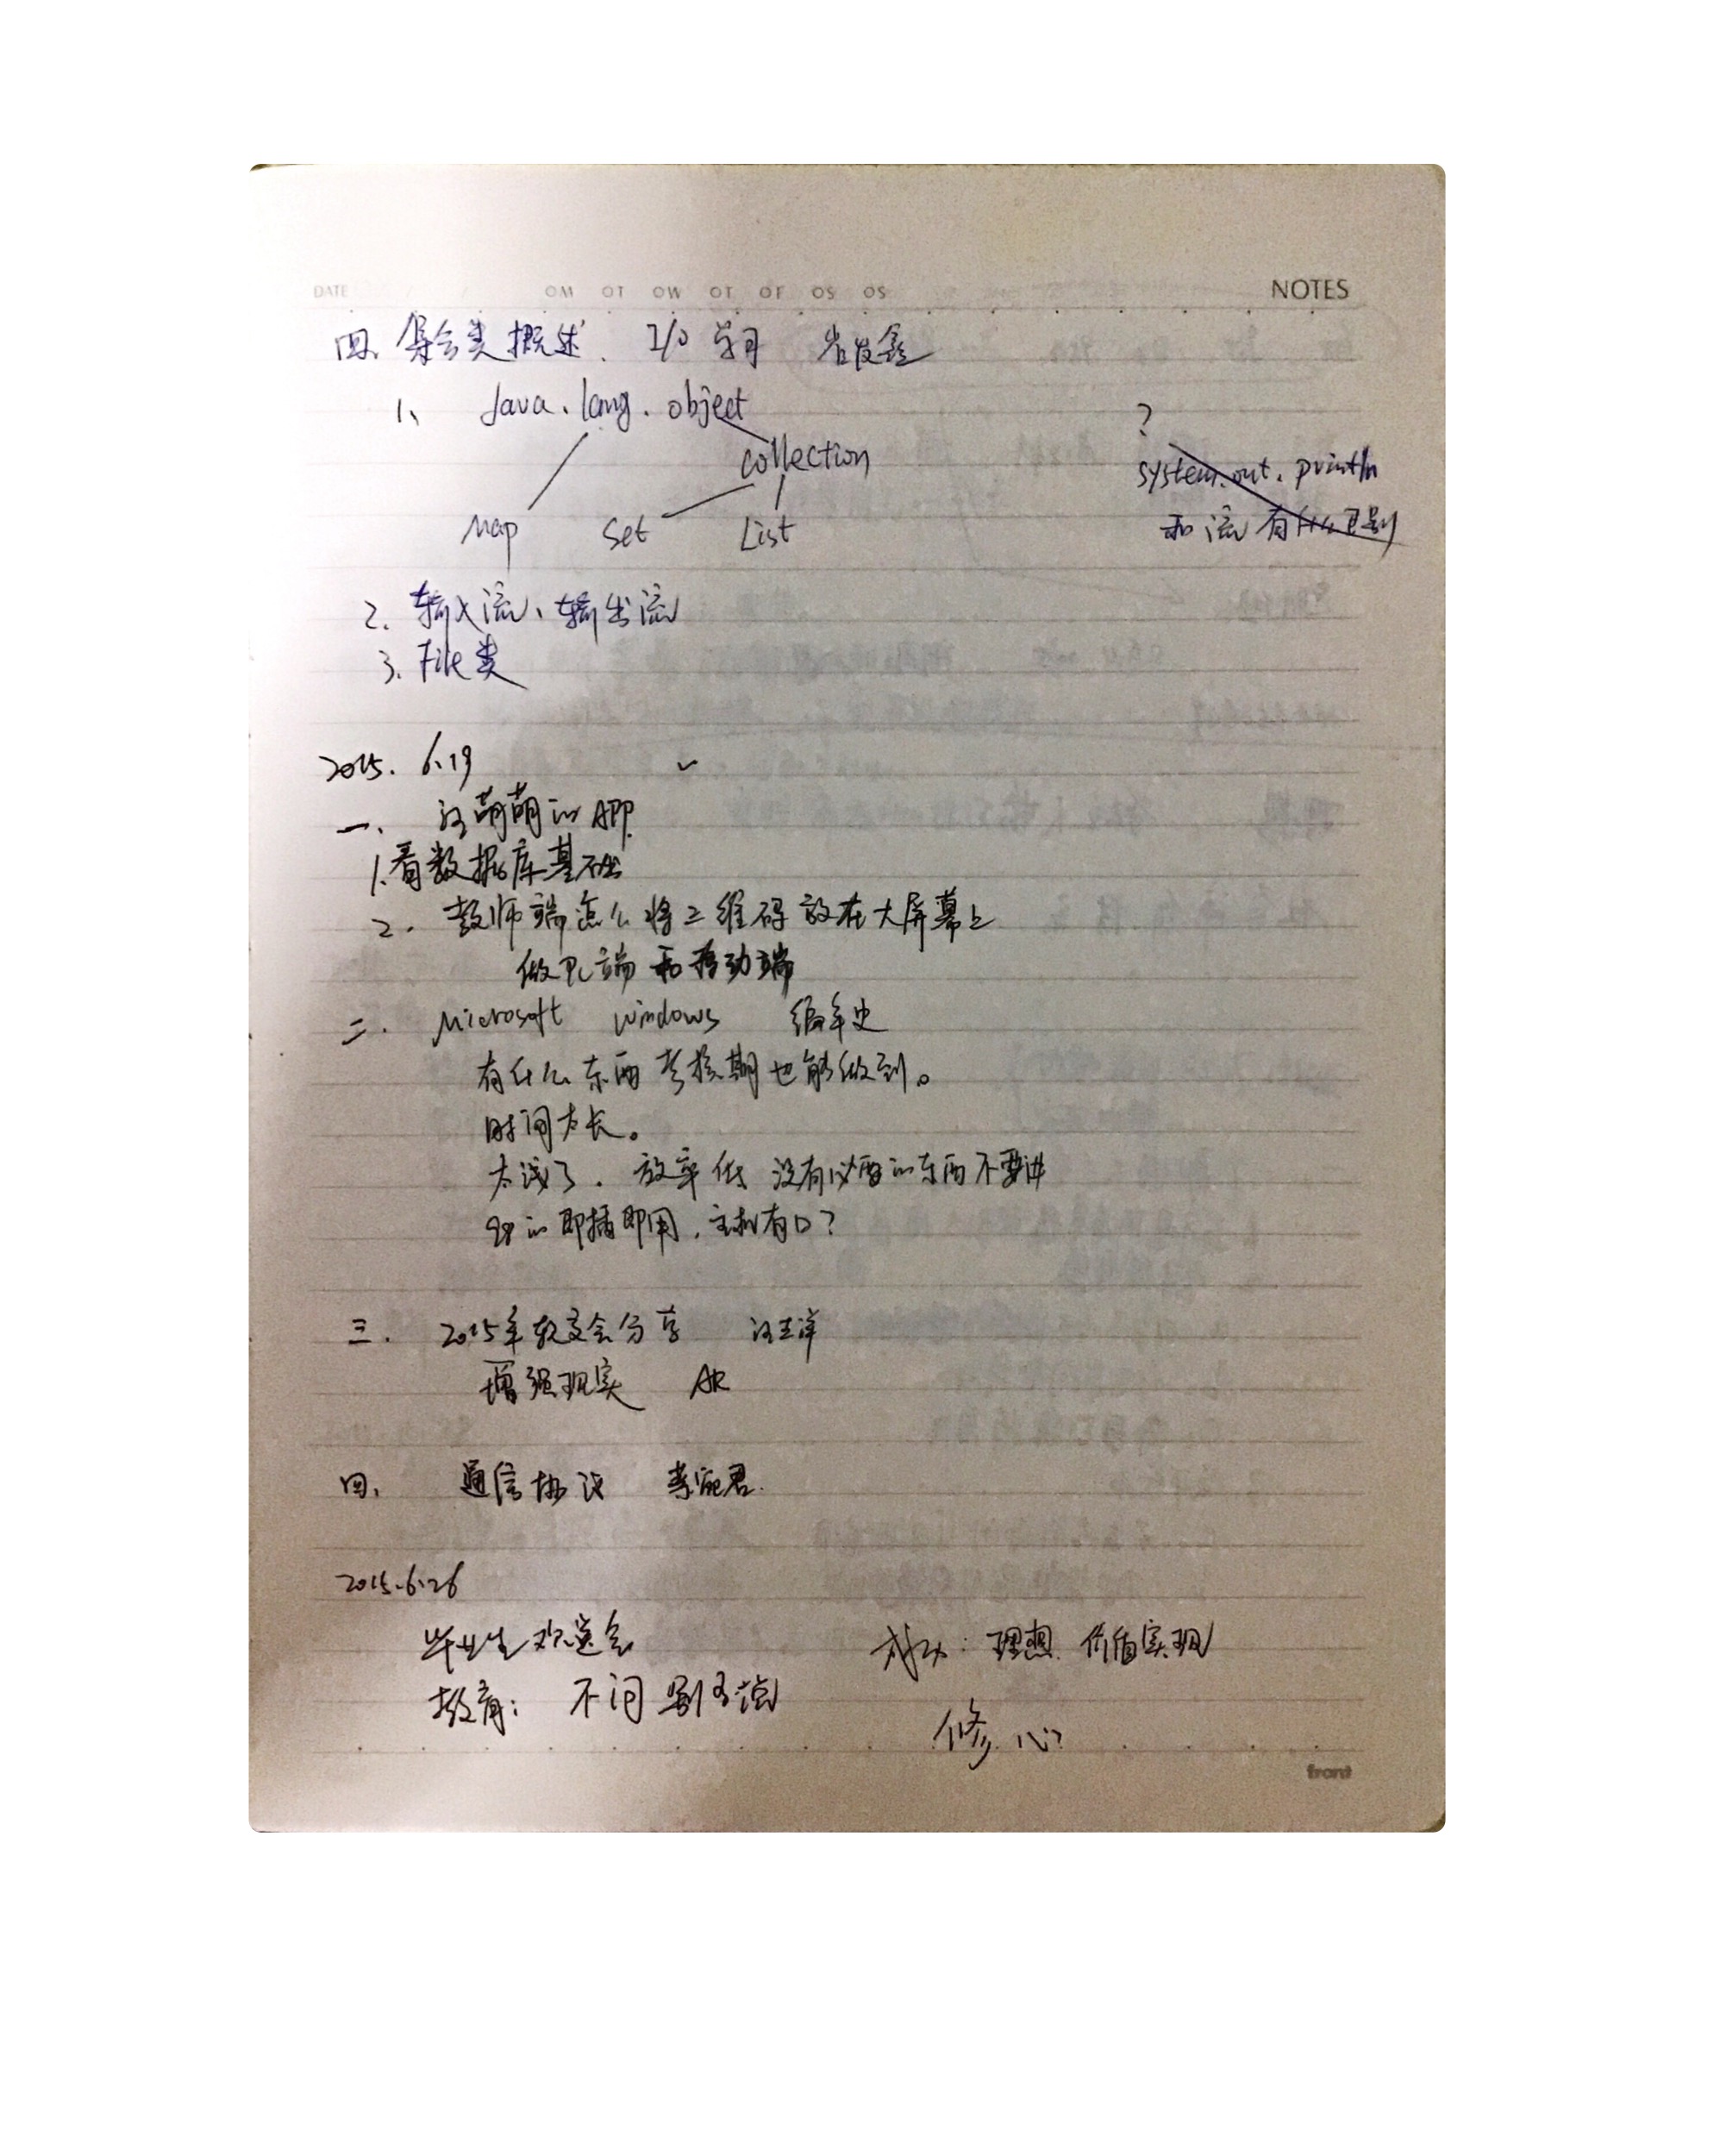 DATE OM OT OW OT OF OS OS NOTES
四、集合类概述、I/O 学习
1、 Java.lang.object
collection
Map Set List
?
system.out.println
和流有什么区别
2. 输入流、输出流
3. File类
2015. 6.19
一. 的 萌萌的 APP
1.看数据库基础
2. 教师端怎么将二维码放在大屏幕上
做PC端和移动端
二. Microsoft windows 编年史
有什么东西考核期也能做到。
时间太长。
太浅了. 效率低 没有必要的东西不要讲
的即插即用,主机有口?
三. 2015年软交会分享 汪王洋
增强现实 AR
四、 通信协议 李宛君.
2015.6.26
毕业生欢送会
成功: 理想 价值实现
教育: 不问
修心
front